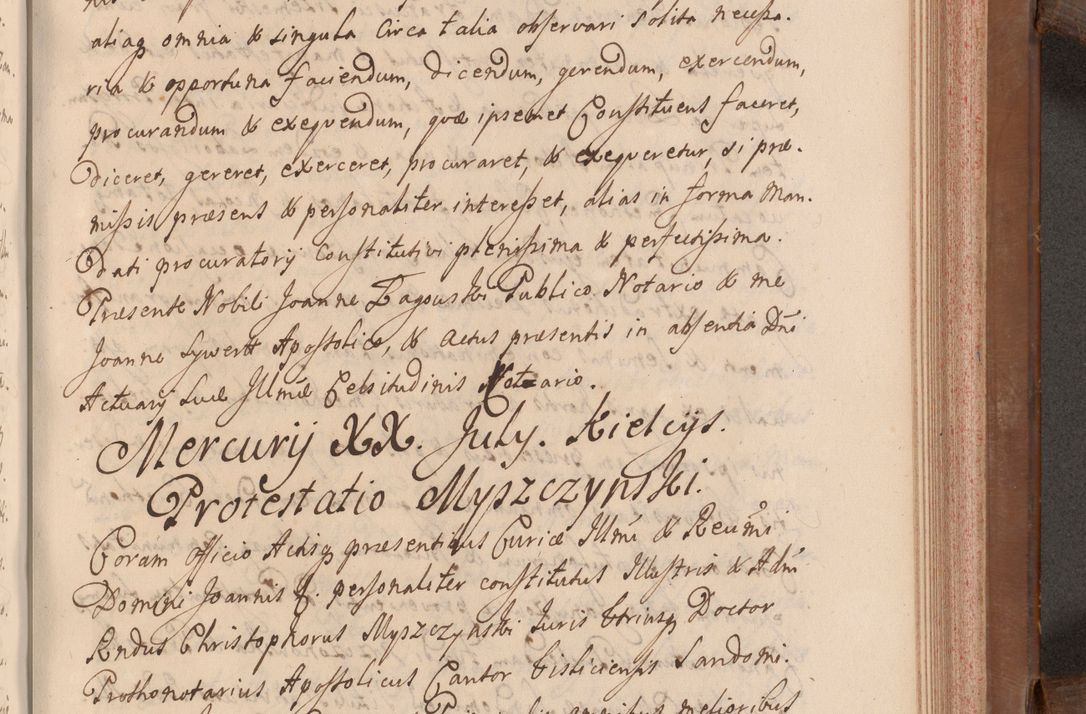 aliaq omnia & singula circa talia observari solita necessa-
ria & opportuna faciendum, dicendum, gerendum, exercendum,
procurandum & exequendum, quæ ipsemet Constituens faceret,
diceret, gereret, exerceret, procuraret, & exequeretur, si præ-
missis præsens & personaliter interesset, alias in forma Man-
dati procuratorij Constitutivi plenissima & perfectissima.
Præsente Nobili Joanne Zagouski Publico Notario & me
Joanne Sywertt Apostolico, & actus præsentis in absentia Dni
Actuarij Suæ Illmæ Celsitudinis Notario.
Mercurij XX. July. Kielcijs.
Protestatio Myszczynski.
Coram officio Actisq præsentibus Curiæ Illmi & Reumi
Domini Joannis personaliter constitutus Illustris & Adm
Rndus Christophorus Myszczynski Juris Utriusq Doctor
Prothonotarius Apostolicus Cantor Visliciensis Sandomi-
omnibus melioribus